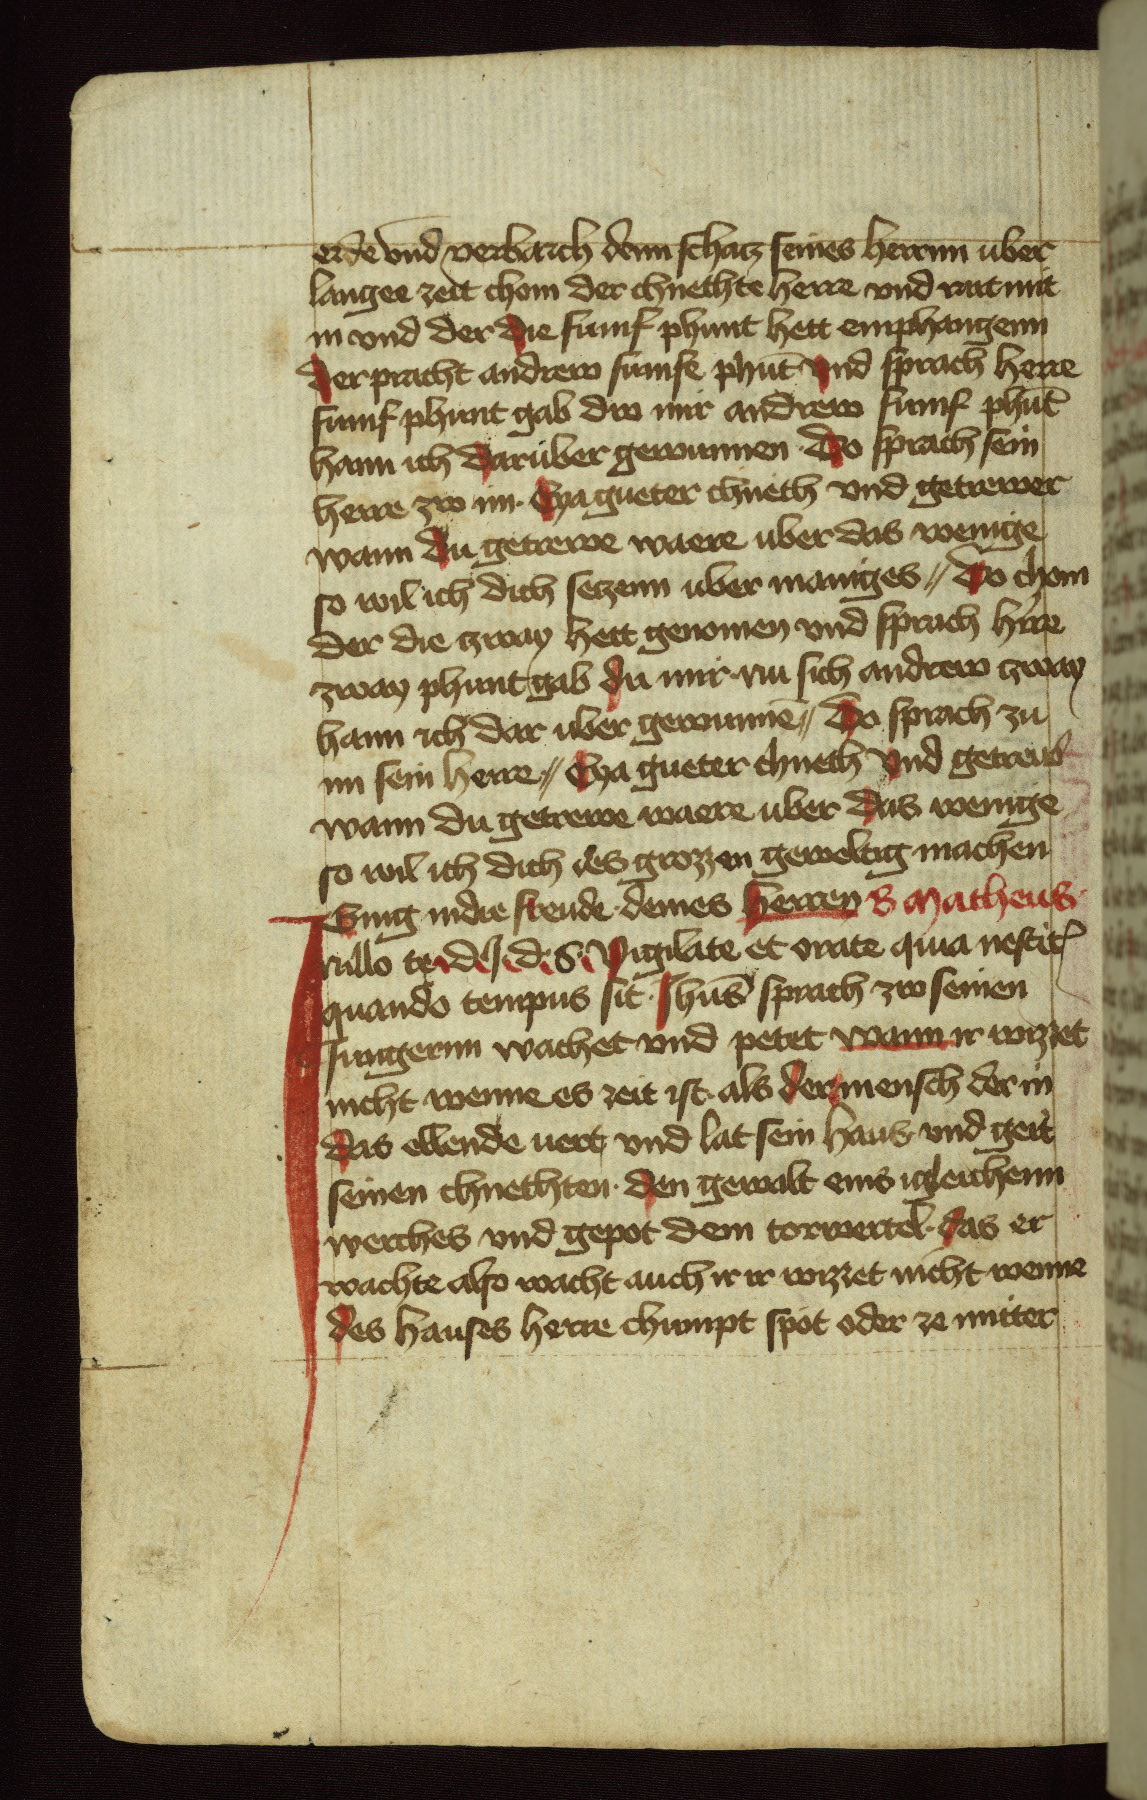 erde vnd verbarch denn schacz seines herrnn uber
langee zeit chom der chnechte herre vnd rait mit
in vnd der die fumf phunt hett emphangenn
der pracht andrew fumfe phūt vnd sprach herre
fumf phunt gab dw mir andrew fumf phūt
hann ich darüber gewunnen · Do sprach sein
herre zw im · Eya gueter chnech vnd getrewer
wann du getrewe waere uber das wenige
so wil ich dich seczenn uber maniges // Do chom
der die czway hett genomen vnd sprach hrre
zway phunt gab du mir · nu sich andrew czway
hann ich dar uber gewunnē // Do sprach zu
im sein herre // Eya gueter chnech vnd getreur
wann du getrewe waere uber das wenige
so wil ich dich des grozzen geweltig machen
Gung in die freude · deines herren S Matheus ·
In illo te · d · J · d · s · Vigilate et orate quia nescit
quando tempus sit · Jhūs sprach zw seinen
Jungernn wachet vnd petet wann ir wizzet
nicht wenne es zeit ist · als der mensch der in
das ellende uert vnd lat sein haus vnd geit
seinen chnechten · den gewalt eins igleichenn
werches vnd gepot dem torwertel · das er
wachte also wacht auch ir ir wizzet nicht wenne
des hauses herre chumpt spot oder ze mitter